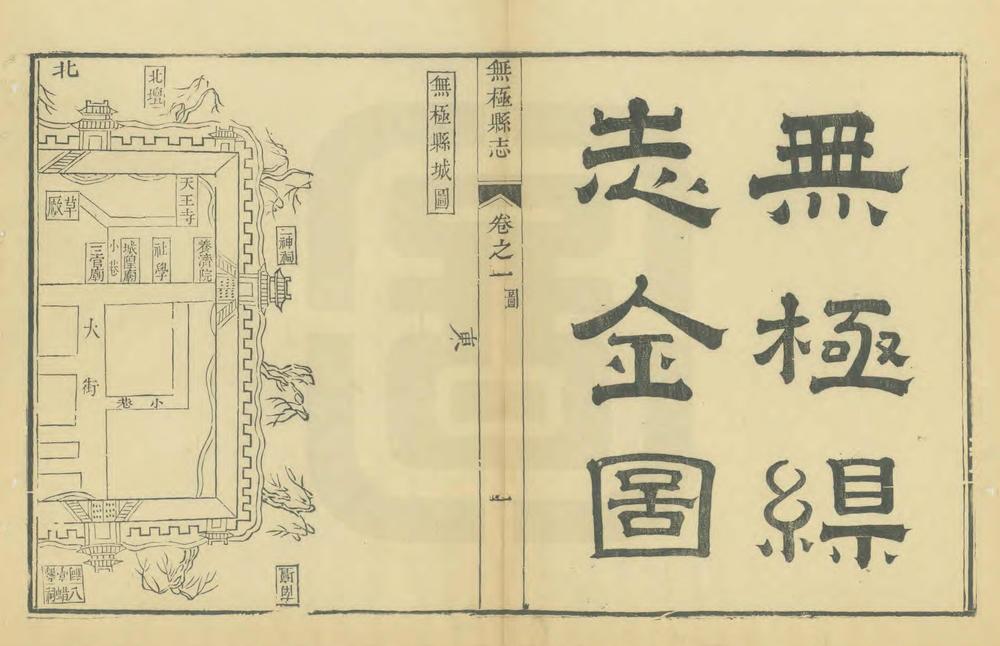 無極縣
志金圖
無極縣志
卷之一
圖
一
無極縣城圖
東
北
北壇
天王寺
草厰
二神祠
養濟院
社學
城隍廟
小巷
三官廟
大街
小巷
八蜡
祠